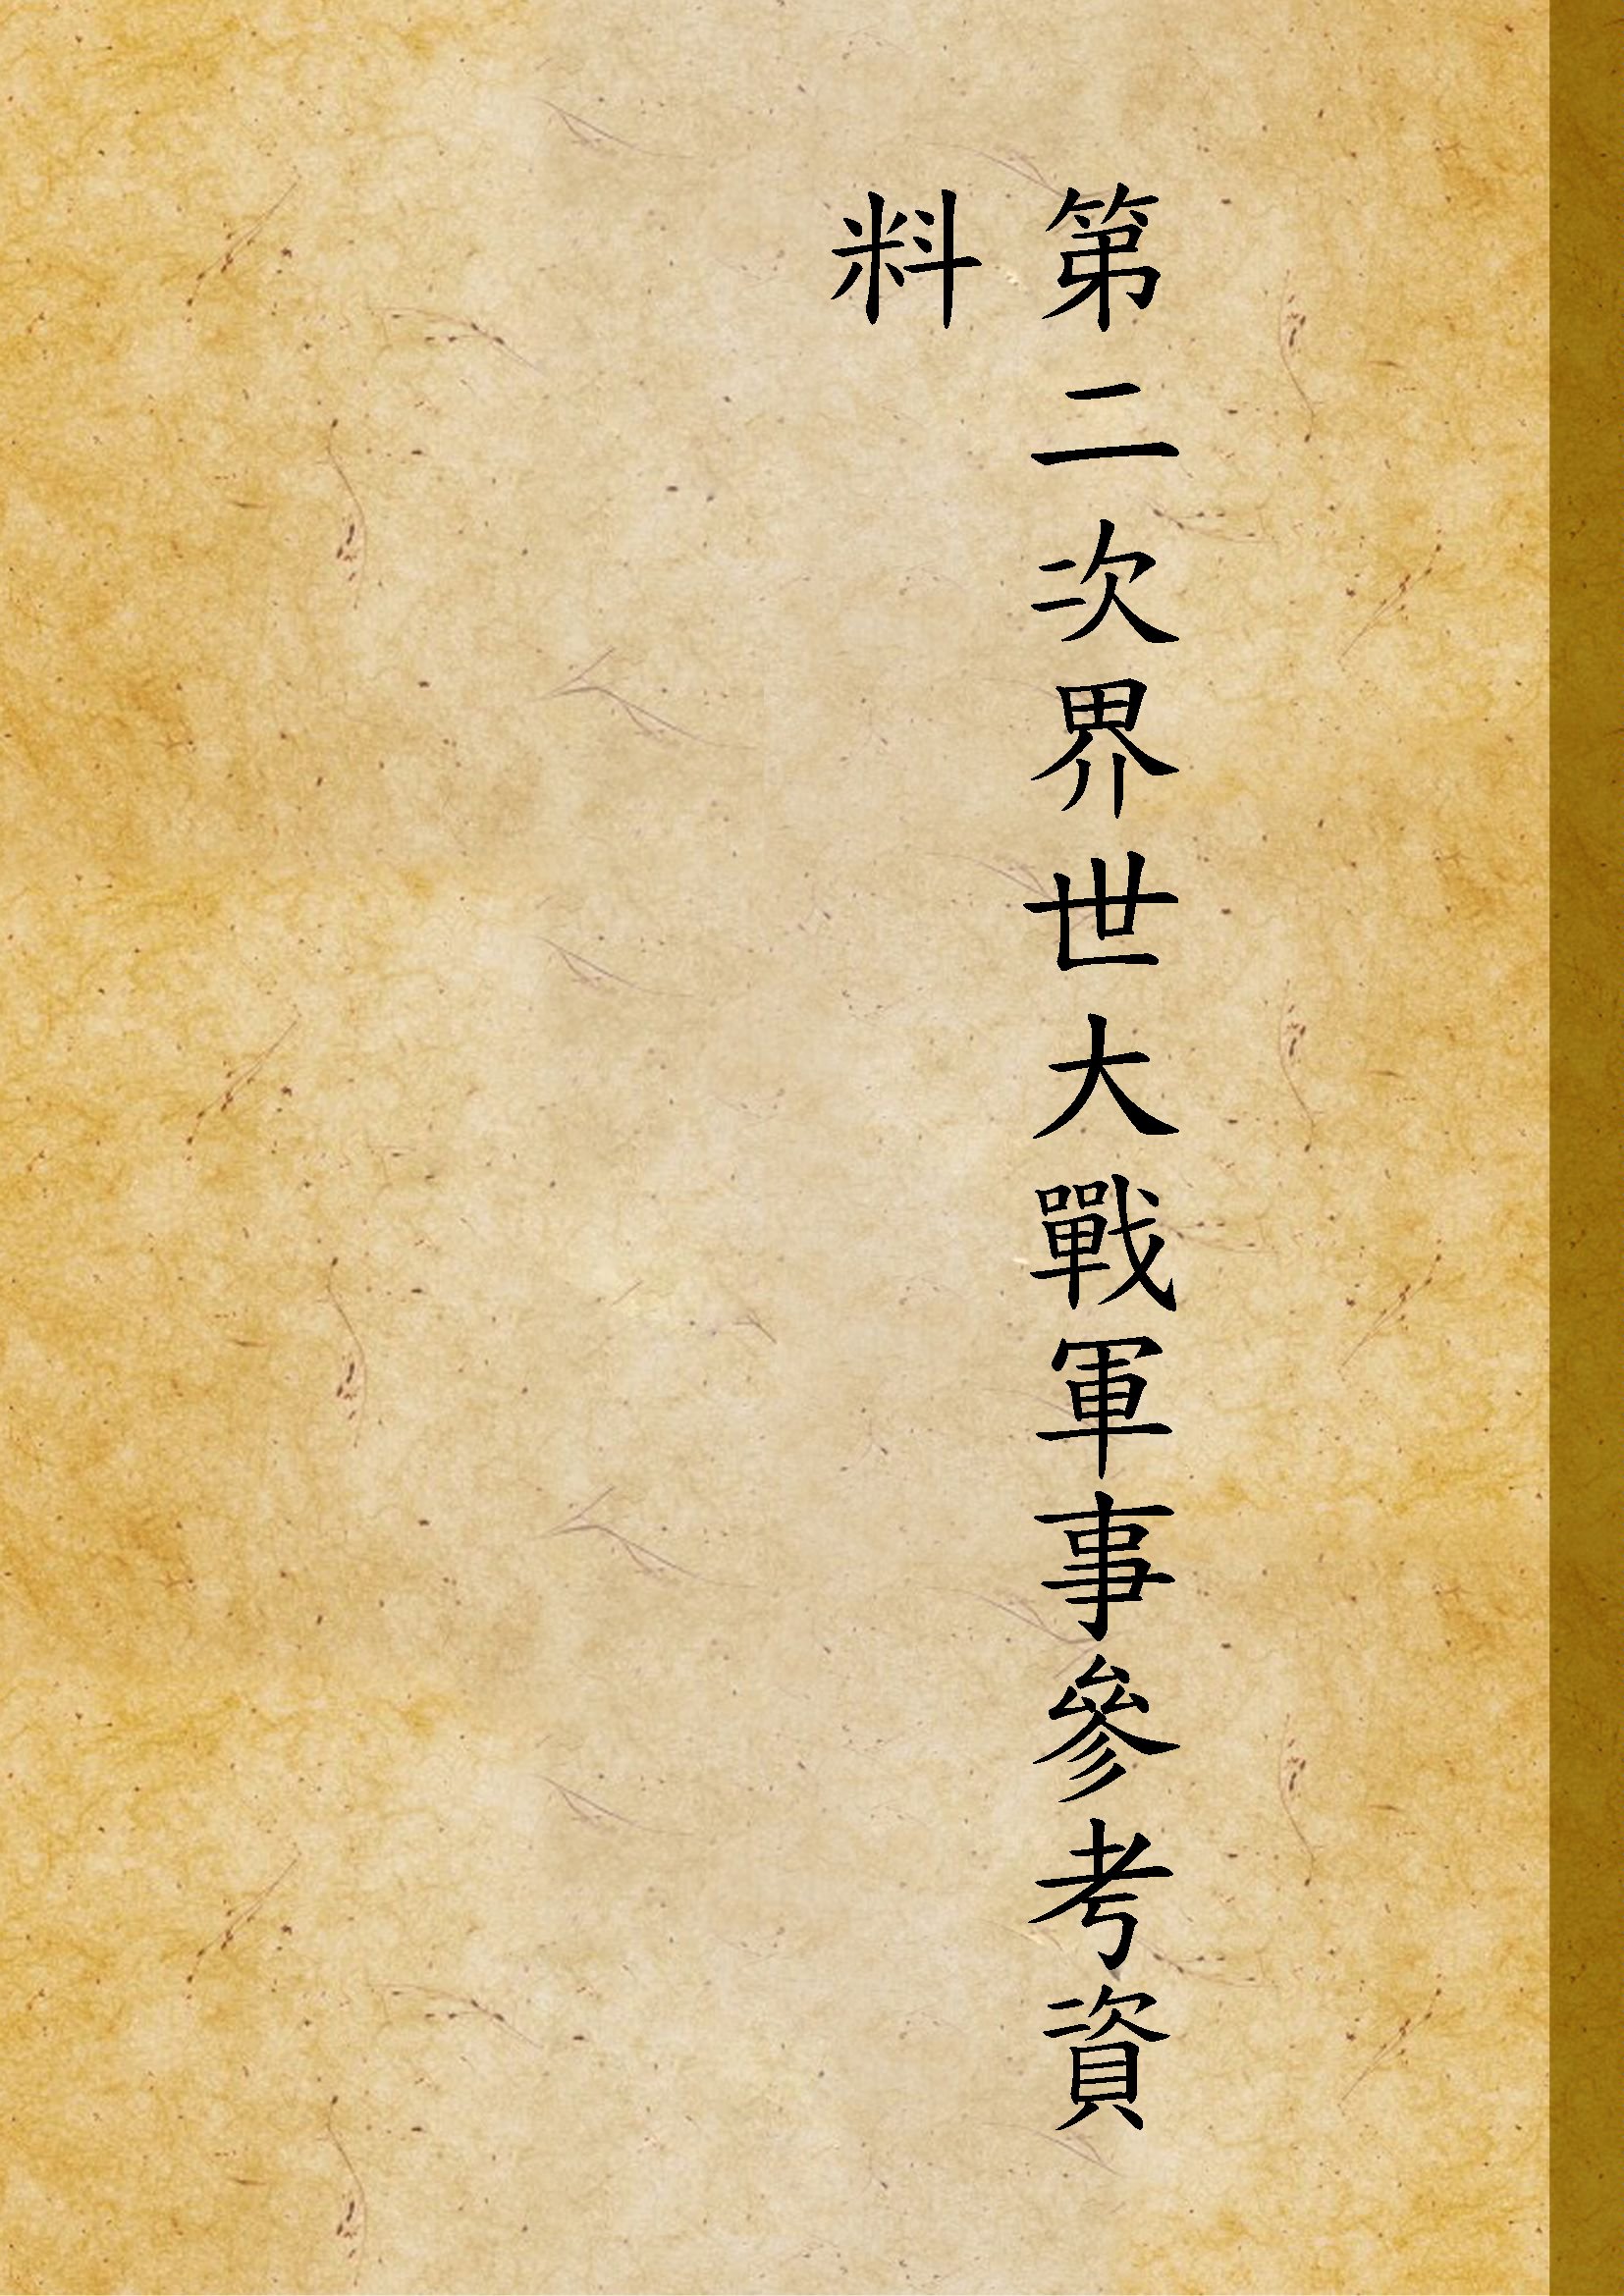 第二次界世大戰軍事參考資
料